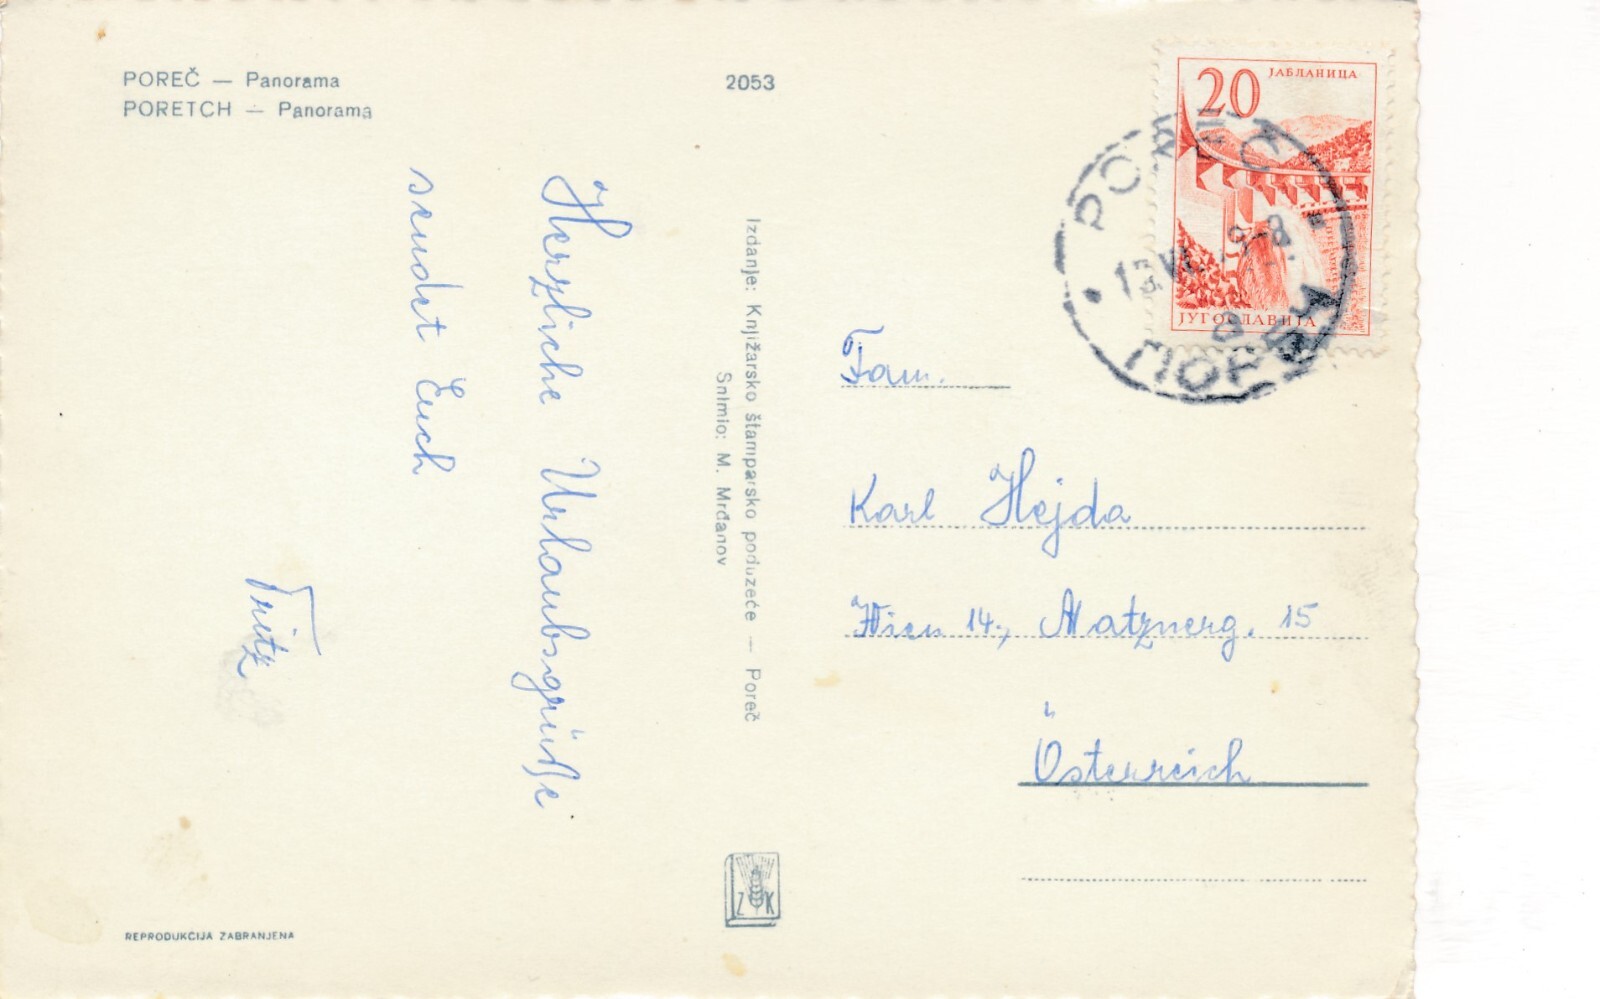 POREČ — Panorama
PORETCH — Panorama
2053
Herzliche Urlaubsgrüße
sendet Euch
Fritz
Izdanje: Knjižarsko štamparsko poduzeće — Poreč
Snimio: M. Mrđanov
20
ЈАБЛАНИЦА
ЈУГОСЛАВИЈА
POREČ
Fam.
Karl Hejda
Wien 14., Matznerg. 15
Österreich
Z K
REPRODUKCIJA ZABRANJENA